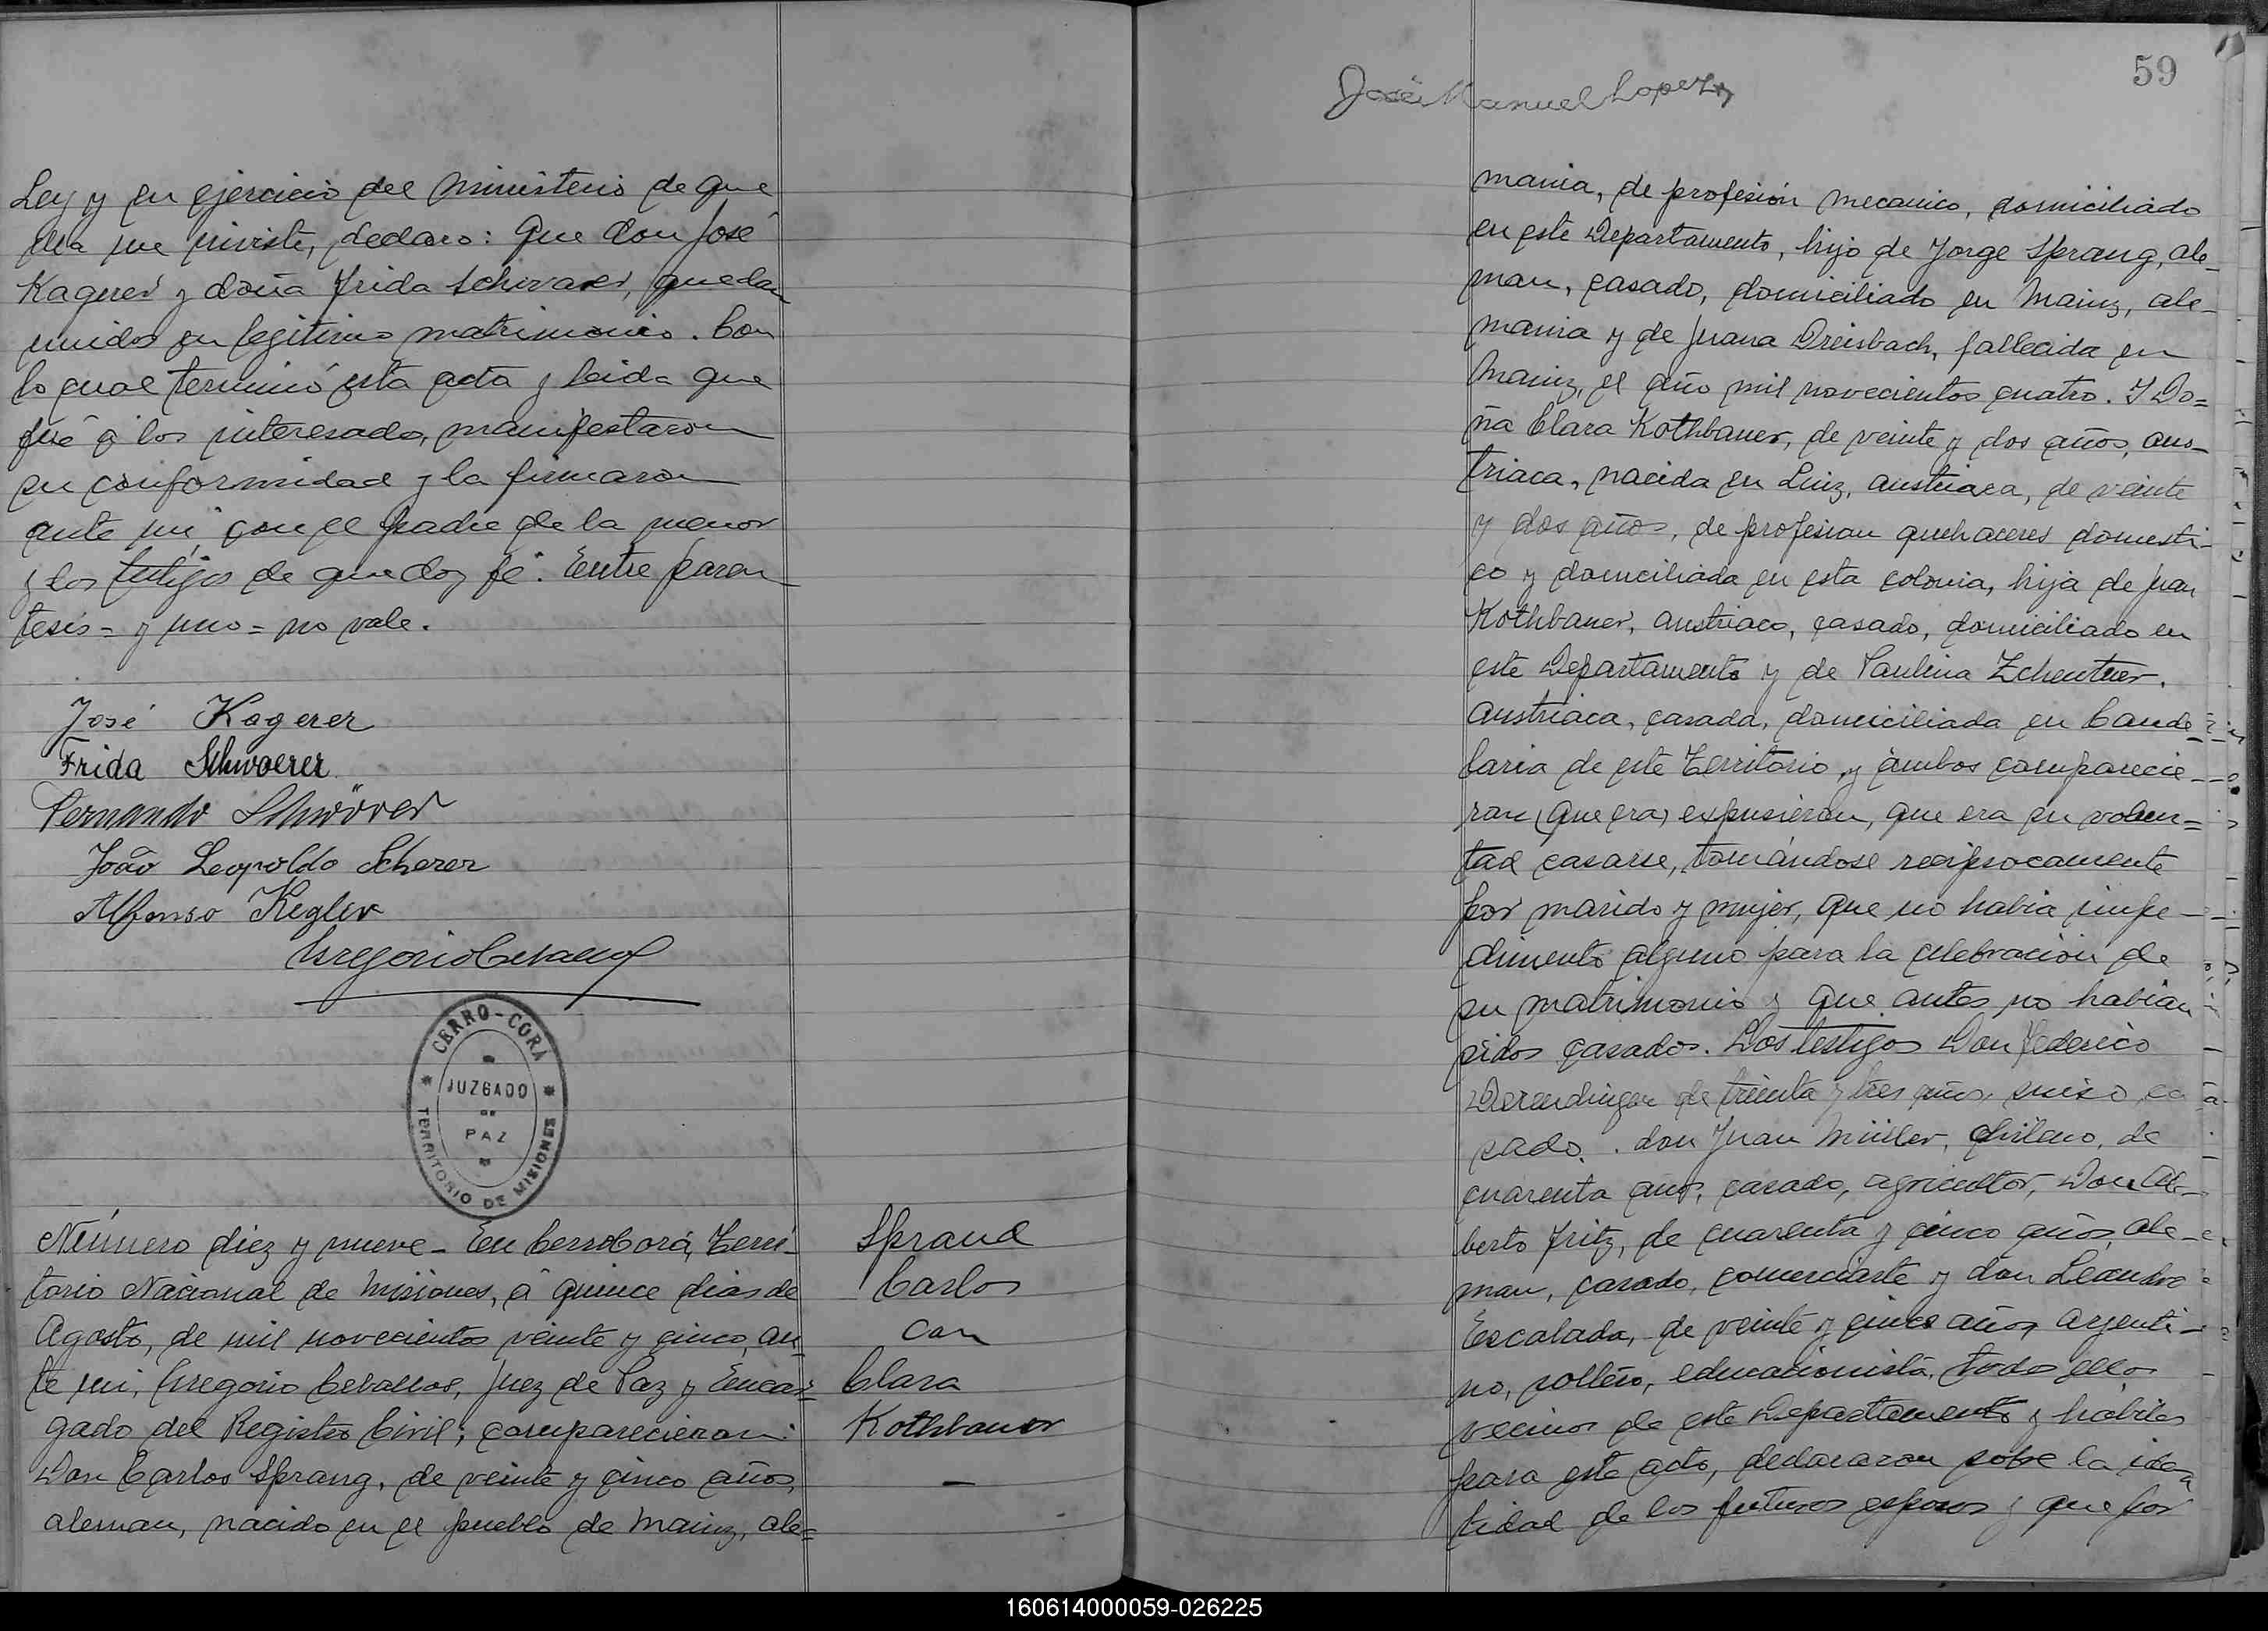 Ley y en ejercicio del ministerio de que
ella me inviste, declaro: que don José
Kagerer y doña Frida Schwarer, quedan
unidos en legitimo matrimonio. Con
lo cual terminó esta acta y leida que
fué á los interesado, manifestaron
su conformidad y la firmaron
ante mi, con el padre de la menor
y los testigos de que doy fé. Entre paren
tesis = y uno = no vale.
José Kagerer
Frida Schwoerer
Fernando Schwörer
João Leopoldo Scherer
Alfonso Kegler
Gregorio Ceballos
CERRO-CORÁ
JUZGADO
DE
PAZ
TERRITORIO DE MISIONES
Número diez y nueve - En Cerro Corá, Terri-
torio Nacional de Misiones, á quince dias de
Agosto, de mil novecientos veinte y cinco, an-
te mi, Gregorio Ceballos, Juez de Paz y Encar-
gado del Registro Civil; comparecieron:
Don Carlos Sprang, de veinte y cinco años,
aleman, nacido en el pueblo de Mainz, ale=
Spraud
Carlos
con
Clara
Kothbauer
—
59
José Manuel Lopez
mania, de profesión mecanico, domiciliado
en este Departamento, hijo de Jorge Sprang, ale-
man, casado, domiciliado en Mainz, ale-
mania y de Juana Dreisbach, fallecida en
Mainz, el año mil novecientos cuatro. Y Do=
ña Clara Kothbauer, de veinte y dos años, aus-
triaca, nacida en Linz, austriaca, de veinte
y dos años, de profesion quehaceres domesti-
co y domiciliada en esta colonia, hija de Juan
Kothbauer, austriaco, casado, domiciliado en
este Departamento y de Paulina Zchentner.
austriaca, casada, domiciliada en Cande-
laria de este Territorio y ámbos comparecie-
ron (que era) expusieron, que era su volun=
tad casarse, tomándose reciprocamente
por marido y mujer, que no habia impe-
dimento alguno para la celebración de
su matrimonio y que antes no habian
sidos casados. Los testigos Don Federico
Derendinger de treinta y tres años, suizo, ca
sado. don Juan Müller, chileno, de
cuarenta años, casado, agricultor, Don Al-
berto Fritz, de cuarenta y cinco años, ale-
man, casado, comerciante y don Leandro
Escalada, de veinte y cinco años argenti-
no, soltero, educacionista, todos ellos
vecinos de este Departamento y hábiles
para este acto, declararon sobre la iden
tidad de los futuros esposos y que por
160614000059-026225